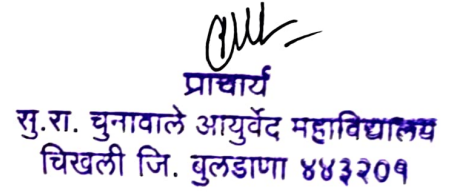 प्राचार्य
सु.रा. चुनावाले आयुर्वेद महाविद्यालय
चिखली जि. बुलडाणा ४४३२०१